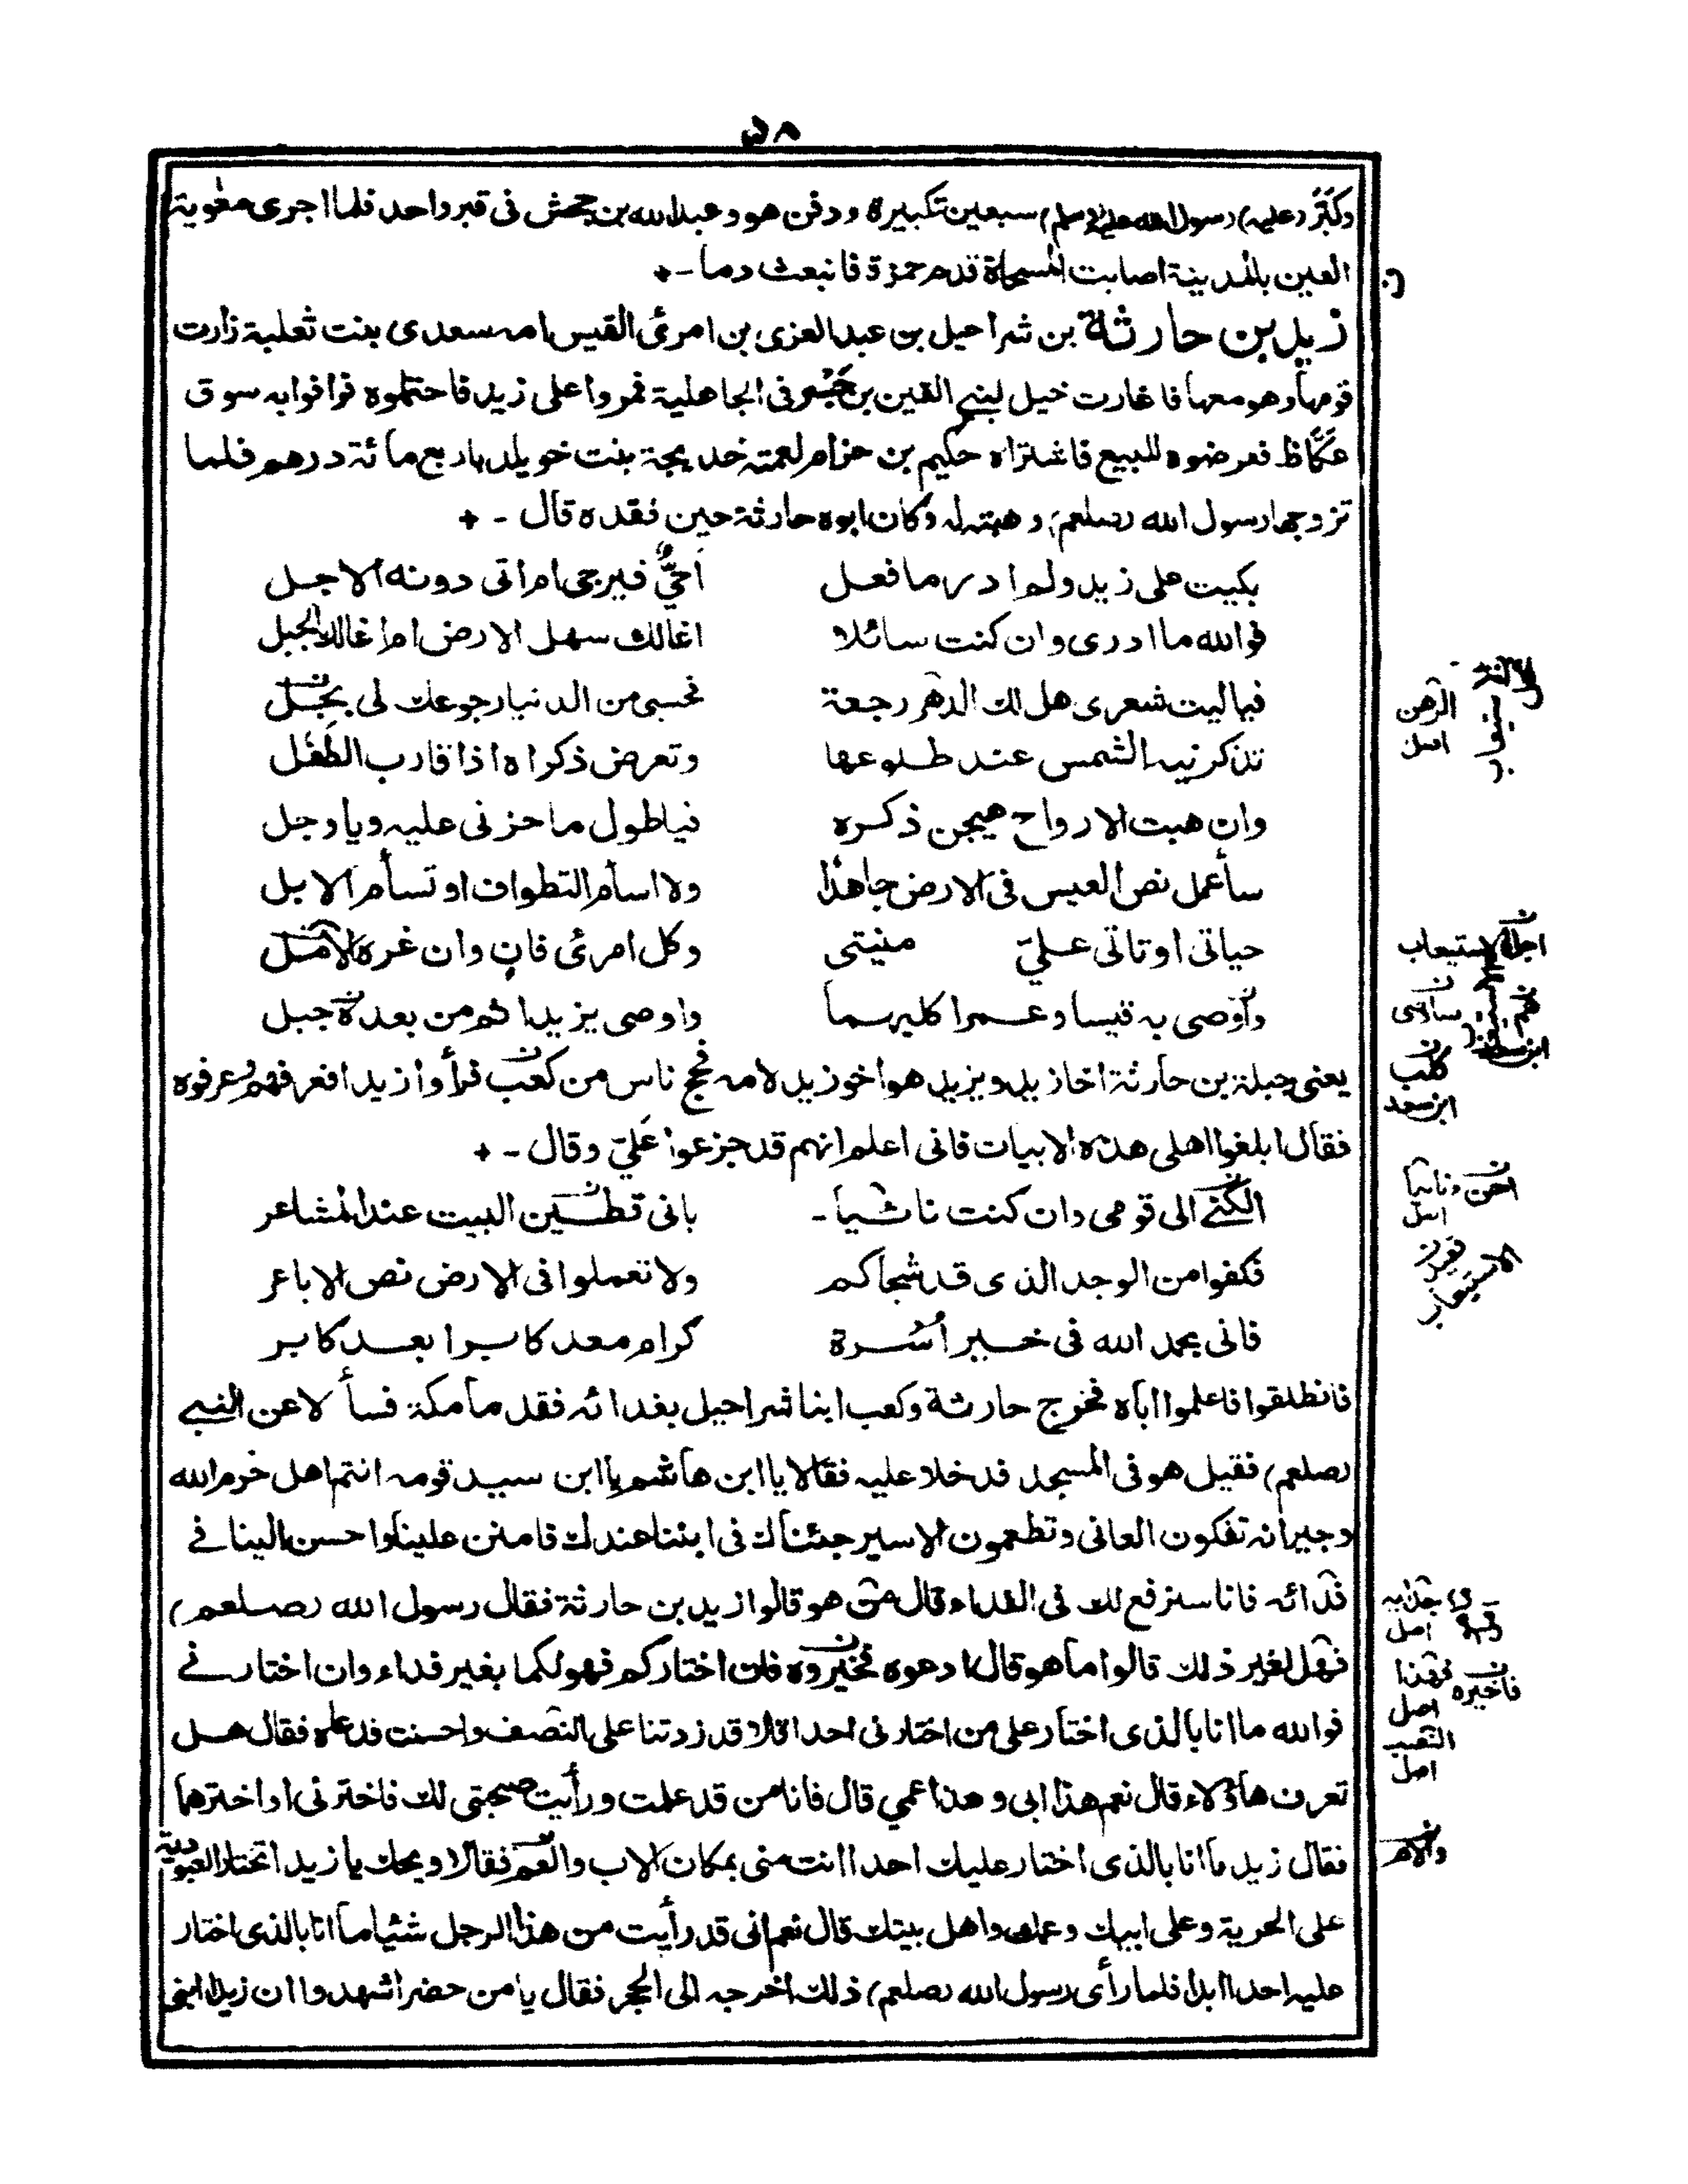 ٥٨
وكبّر (عليه) رسول الله صلى الله عليه وسلم) سبعين تكبيرة ودفن هو وعبدالله بن جحش فى قبر واحد فلما اجرى معٰوية
العين بالمدينة اصابت المسحاة قدم حمزة فانبعث دما -
زيد بن حارثة بن شراحيل بن عبدالعزى بن امرئ القيس امه سعدى بنت ثعلبة زارت
قومها وهو معها فاغارت خيل لبنى القين بن جسر فى الجاهلية فمروا على زيد فاحتملوه فوافوا به سوق
عكاظ فعرضوه للبيع فاشتراه حكيم بن حزام لعمته خديجة بنت خويلد باربع مائة درهم فلما
تزوجها رسول الله (صلعم) وهبته له وكان ابوه حارثة حين فقده قال -
بكيت على زيد ولم ادر ما فعل احيٌّ فيرجى ام اتى دونه الاجل
فوالله ما ادرى وان كنت سائلا اغالك سهل الارض ام غالك الجبل
فياليت شعرى هل لك الدهر رجعة فحسبى من الدنيا رجوعك لى بجل
تذكرنيه الشمس عند طلوعها وتعرض ذكراه اذا قارب الطَفَل
وان هبت الارواح هيجن ذكره فياطول ما حزنى عليه ويا وجل
سأعمل نص العيس فى الارض جاهدًا ولا اسأم التطواف او تسأم الابل
حياتى او تاتى علىّ منيتى وكل امرئ فانٍ وان غره الامل
واوصى به قيسا وعمرا كليهما واوصى يزيدا ثم من بعده جبل
يعنى جبلة بن حارثة اخا زيد ويزيد هو اخو زيد لامه فحج ناس من كعب فرأوا زيدا فعرفهم وعرفوه
فقال ابلغوا اهلى هذه الابيات فانى اعلم انهم قد جزعوا علىّ وقال -
الكنى الى قومى وان كنت نائيا - بانى قطين البيت عند المشاعر
فكفوا من الوجد الذى قد شجاكم ولا تعملوا فى الارض نص الاباعر
فانى بحمد الله فى خير اُسْرة كرام معد كابرا بعد كابر
فانطلقوا فاعلموا اباه فخرج حارثة وكعب ابنا شراحيل بفدائه فقدما مكة فسألا عن النبى
(صلعم) فقيل هو فى المسجد فدخلا عليه فقالا يا ابن هاشم يا ابن سيد قومه انتم اهل حرم الله
وجيرانه تفكون العانى وتطعمون الاسير جئناك فى ابننا عندك فامنن علينا واحسن الينا فى
فدائه فانا سنرفع لك فى الفداء قال من هو قالوا زيد بن حارثة فقال رسول الله (صلعم)
فهل لغير ذلك قالوا ما هو قال ادعوه فخيروه فان اختاركم فهو لكما بغير فداء وان اختارنى
فوالله ما انا بالذى اختار على من اختارنى احدا قالا قد زدتنا على النصف واحسنت فدعاه فقال هل
تعرف هاؤلاء قال نعم هذا ابى وهذا عمى قال فانا من قد علمت ورأيت صحبتى لك فاخترنى او اخترهما
فقال زيد ما انا بالذى اختار عليك احدا انت منى بمكان الاب والعم فقالا ويحك يا زيد اتختار العبودية
على الحرية وعلى ابيك وعمك واهل بيتك قال نعم انى قد رأيت من هذا الرجل شئيا ما انا بالذى اختار
عليه احدا ابدا فلما رأى رسول الله (صلعم) ذلك اخرجه الى الحجر فقال يا من حضر اشهدوا ان زيدا ابنى
الرهن
اصل
الاستيعاب
كلب
ابن سعد
اصل
الاستيعاب
اصل
فهذا
اصل
اصل